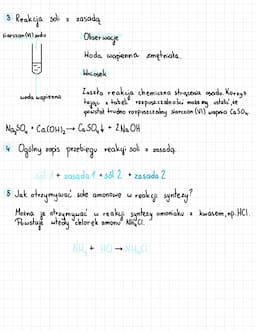 3 Reakcja soli z zasadą
siarczan(VI) sodu
Obserwacje
Woda wapienna zmętniała.
Wniosek
woda wapienna
Zaszła reakcja chemiczna strącania osadu. Korzys
tając z tabeli rozpuszczalności możemy ustalić, że
powstał trudno rozpuszczalny siarczan (VI) wapnia CaSO₄.
Na₂SO₄ + Ca(OH)₂ → CaSO₄↓ + 2NaOH
4 Ogólny zapis przebiegu reakcji soli z zasadą.
sól 1 + zasada 1 → sól 2 + zasada 2
5 Jak otrzymywać sole amonowe w reakcji syntezy?
Można je otrzymywać w reakcji syntezy amoniaku z kwasem, np. HCl.
Powstaje wtedy chlorek amonu NH₄Cl.
NH₃ + HCl → NH₄Cl